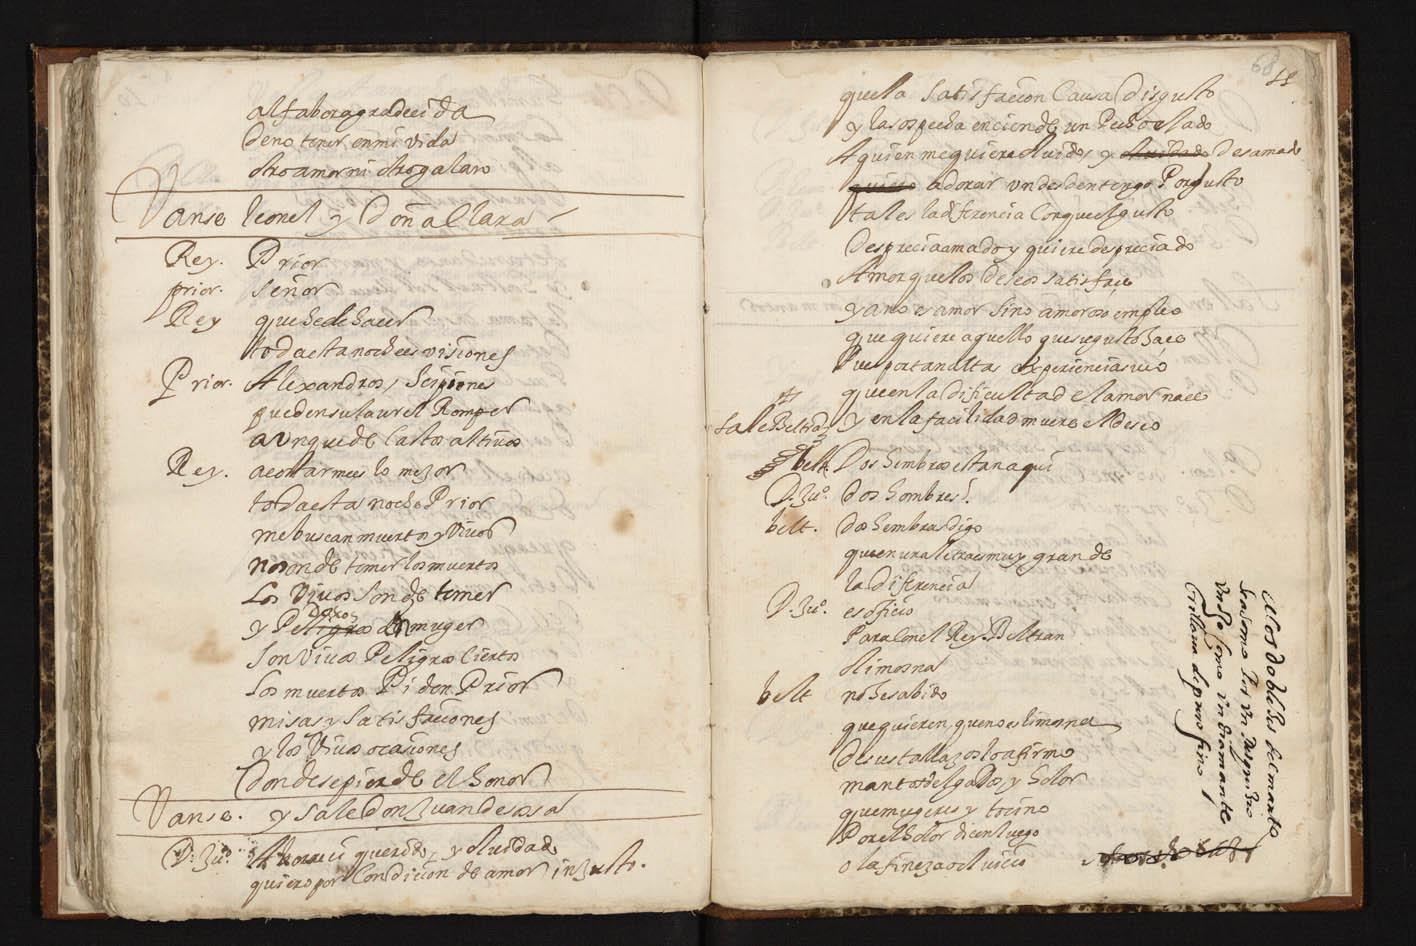 al fabor agradecida
de no tener en mi vida
otro amor ni otro galan
Vanse leonel y Doña Clara
Rey. Prior
prior. Señor
Rey que he de hacer
toda esta noche es visiones
Prior. Alexandros, Scipiones
pueden su laurel Romper
aunque de Castos altivos
Rey. acostarme es lo mejor
toda esta noche Prior
me buscan muertos y Vivos
no son de temer los muertos
Los Vivos son de temer
y Peligros de muger
son Vivos Peligros Ciertos
Los muertos Piden Prior
misas y satisfaciones
y los Vivos ocasiones
donde se pierde el honor
Vanse. y sale Don Juan de sosa
D. Juº. Aborreci querido, y oluidado
quiero por Condicion de amor injusto.
68
que la satisfacion Causa disgusto
y la sospecha enciende un Pecho elado
A quien me quiere oluido, y desamado
adorar un desden tengo Por gusto
tal es la diferencia Con que el gusto
desprecia amado y quiere despreciado
Amor que los deseos satisface
ya no es amor sino amoroso empleo
que quiere aquello que su gusto hace
Pues por tan altas experiencias veo
que en la dificultad el amor nace
Sale Beltran y en la facilidad muere el deseo
belt. Dos hembras estan aqui
D. Juº. dos hombres?
belt. dos hembras digo
que en una letra es muy grande
la diferencia
D. Juº. es oficio
Para Con el Rey Beltran
o limosna
belt no he sabido
que quieren que no es limosna
de sus tallazos lo afirmo
mantos delgados, y holor
que mugeres y tocino
Por el holor dicen luego
o la fineza o el vicio
A los dobleces del manto
se asomo
un de como un diamante